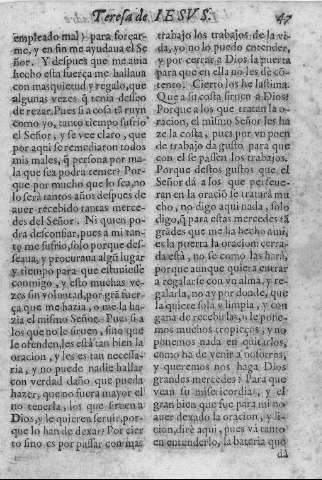 Teresa de IESVS. 47
empleado mal) para forçar-
me, y en fin me ayudaua el Se
ñor. Y despues que me auia
hecho esta fuerça me hallaua
con mas quietud y regalo, que
algunas vezes q̃ tenia desseo
de rezar. Pues si a cosa tã ruyn
como yo, tanto tiempo sufrio
el Señor, y se vee claro, que
por aqui se remediaron todos
mis males, q̃ persona por ma-
la que sea podra temer? Por-
que por mucho que lo sea, no
lo serà tantos años despues de
auer recebido tantas merce-
des del Señor. Ni quien po-
dra desconfiar, pues a mi tan-
to me sufrio, solo porque des-
seaua, y procuraua algũ lugar
y tiempo para que estuuiesse
conmigo, y esto muchas ve-
zes sin voluntad, por grã fuer-
ça que me hazia, o me la ha-
zia el mismo Señor. Pues si a
los que no le siruen, sino que
le ofenden, les està tan bien la
oracion, y les es tan necessa-
ria, y no puede nadie hallar
con verdad daño que pueda
hazer, que no fuera mayor el
no tenerla, los que siruen a
Dios, y le quieren seruir, por-
que lo han de dexar? Por cier
to sino es por passar con mas
trabajo los trabajos de la vi-
da, yo no lo puedo entender,
y por cerrar a Dios la puerta
para que en ella no les dè cõ-
tento? Cierto los he lastima.
Que a su costa siruen a Dios?
Porque a los que tratan la o-
racion, el mismo Señor les ha
ze la costa, pues por vn poen
de trabajo da gusto para que
con el se passen los trabajos.
Porque destos gustos que el
Señor dà a los que perseue-
ran en la oraciõ se tratarà mu
cho, no digo aqui nada, solo
digo, q̃ para estas mercedes tã
grãdes que me ha hecho a mi,
es la puerta la oracion: cerra-
da esta, no se como las harà,
porque aunque quiera entrar
a regalarse con vn alma, y re-
galarla, no ay por donde, que
la quiere sola y limpia, y con
gana de recebirlas, si le pone-
mos muchos tropieços, y no
ponemos nada en quitarlos,
como ha de venir a nosotros,
y queremos nos haga Dios
grandes mercedes? Para que
vean su misericordia, y el
gran bien que fue para mi no
auer dexado la oracion, y li-
cion, dirè aqui, pues và tanto
en entenderlo, la bateria que
dà